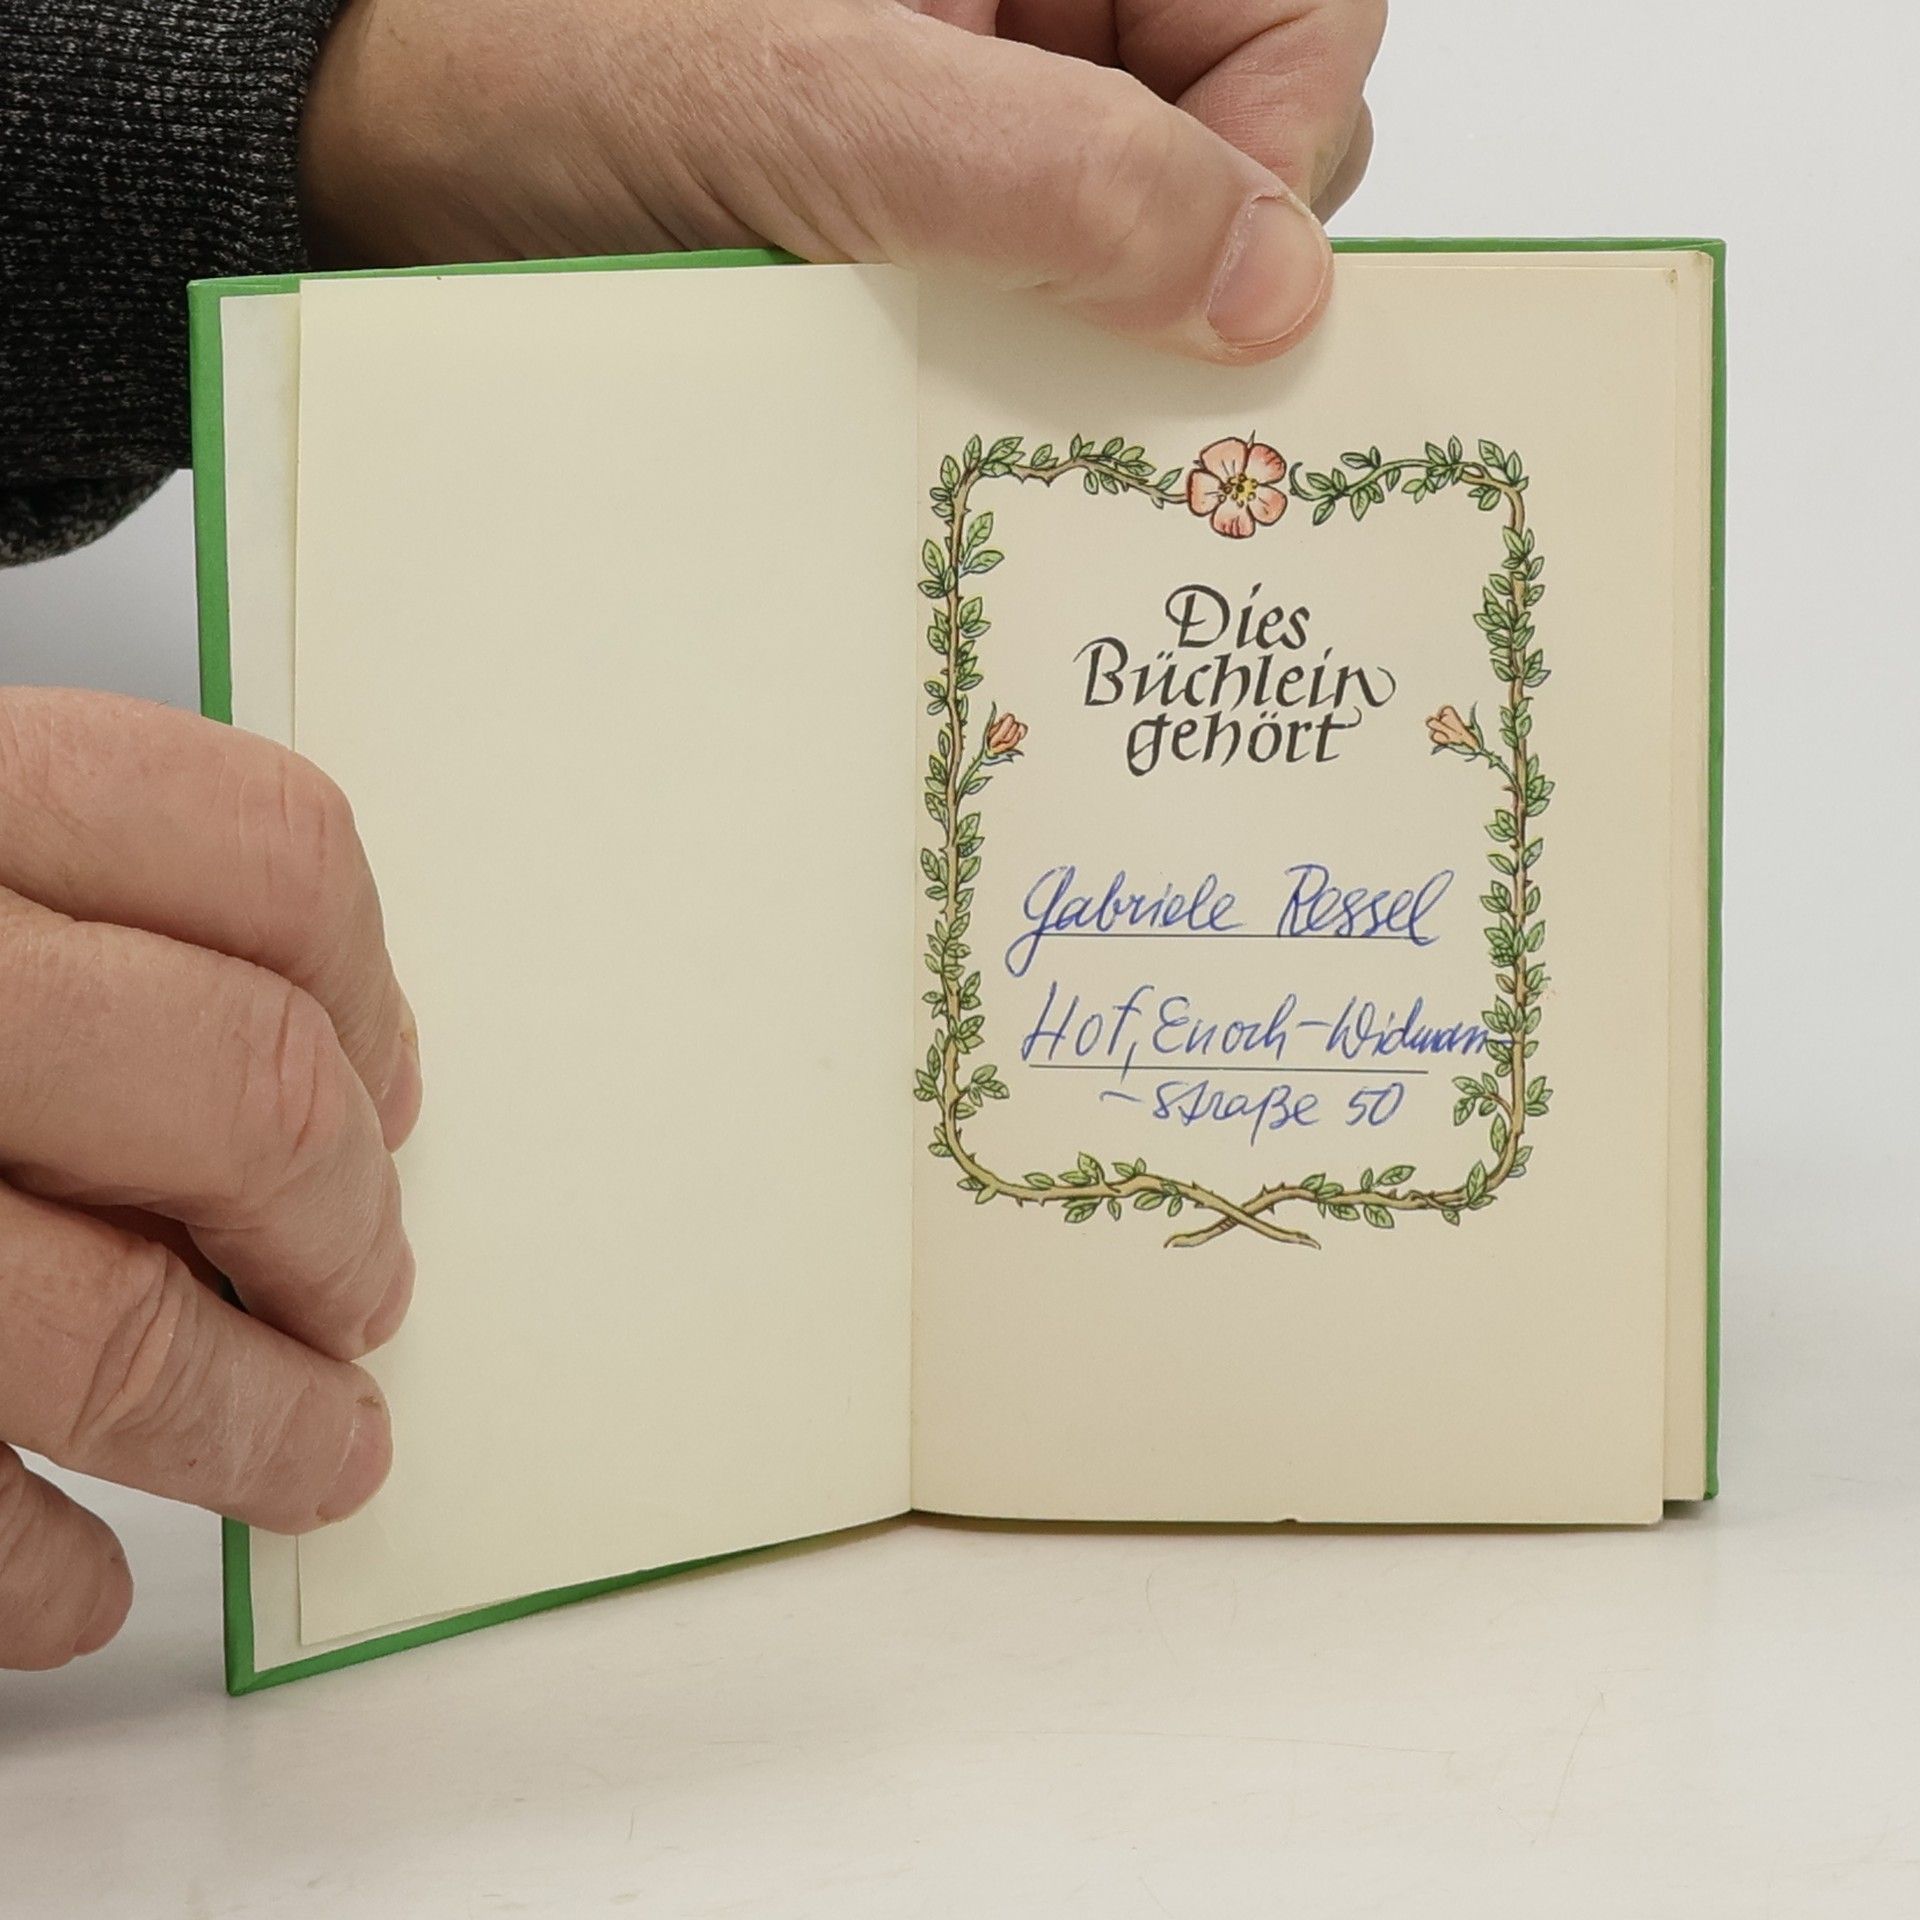 Dies
Büchlein
gehört
Gabriele Ressel
Hof, Enoch-Widman-
-straße 50